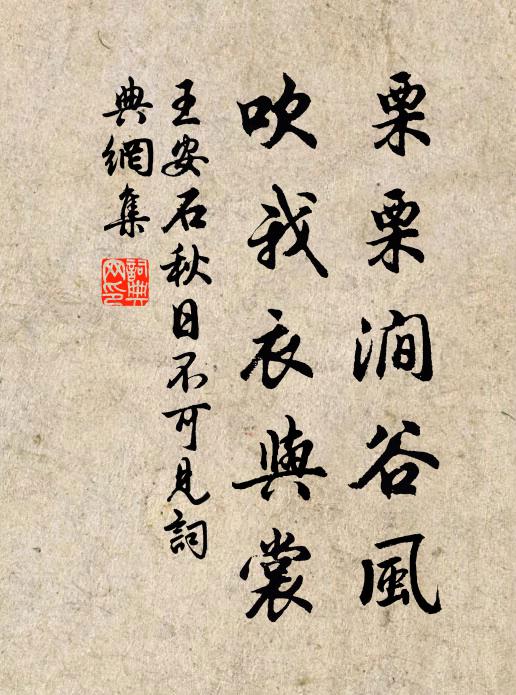 栗栗澗谷風
吹我衣與裳
王安石秋日不可見詞
典網集
詞典
网印